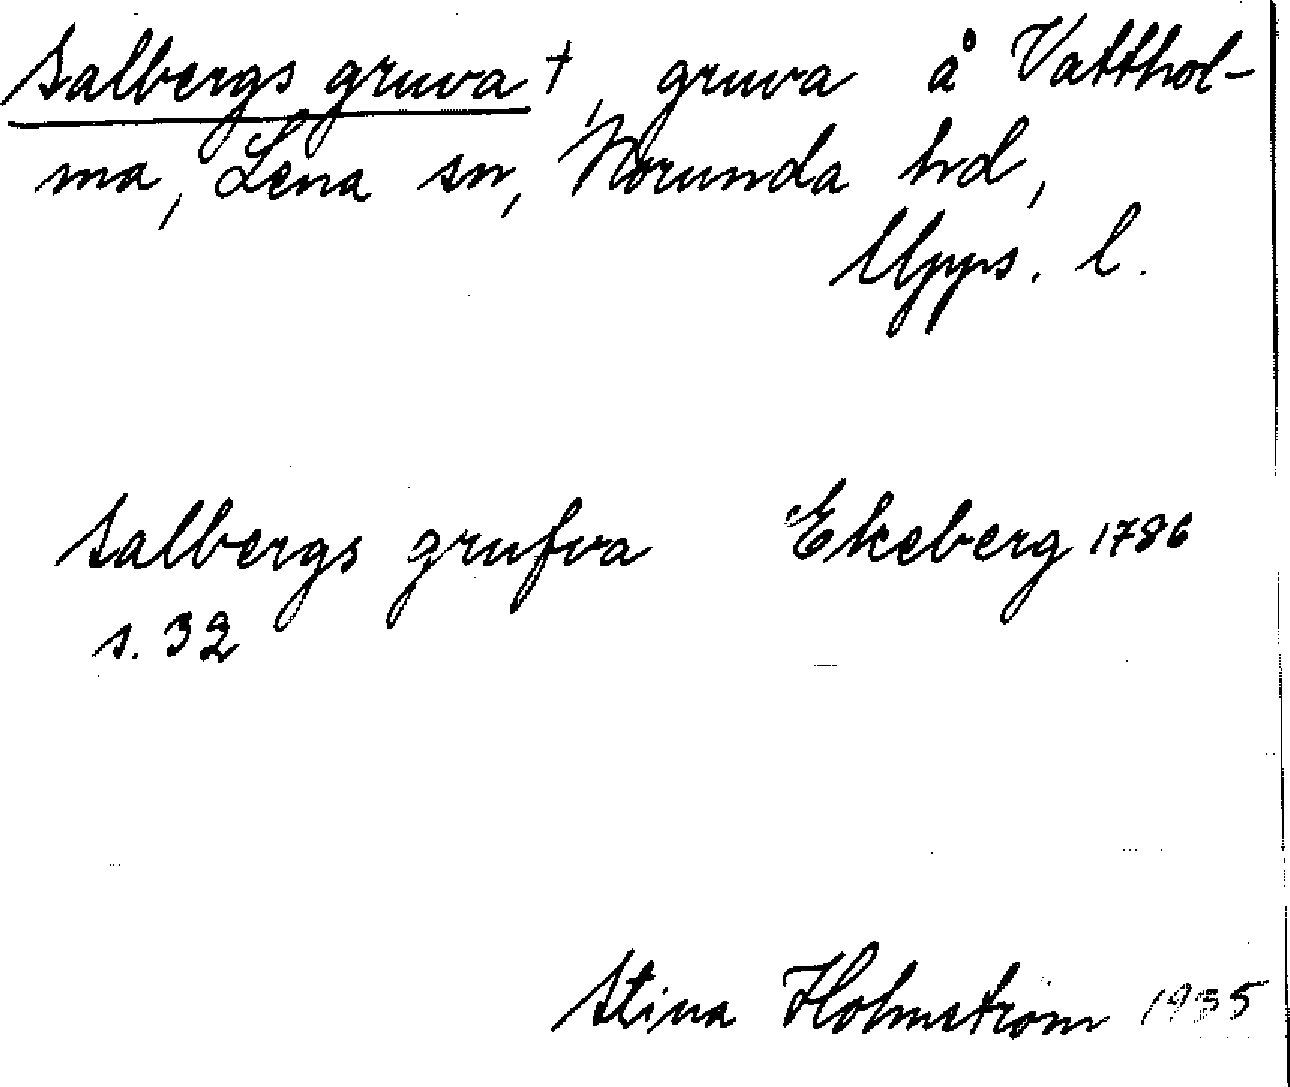 Salbergs gruva †, gruva å Vatthol-
ma, Lena sn, Norunda hd,
Upps. l.
Salbergs grufva Ekeberg 1786
s. 32
Stina Holmström 1935